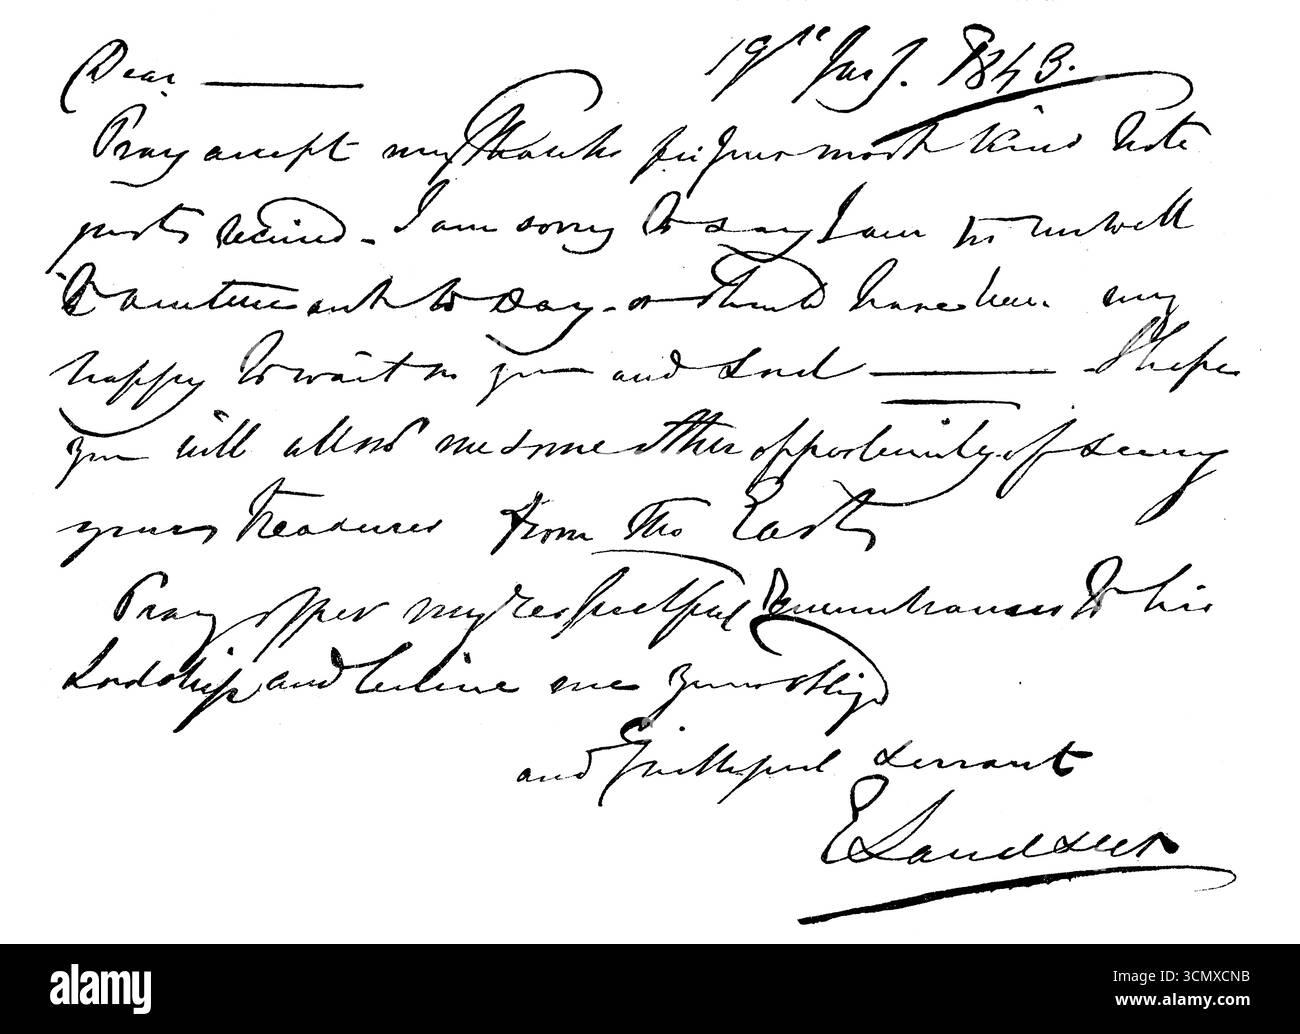 Dear ——— 19th Jany. 1843.
Pray accept my thanks for your most kind note
just received – I am sorry to say I am too unwell
to venture out to day – or should have been very
happy to wait on you and Lord ——— – I hope
you will allow me some other opportunity of seeing
your treasures from the East
Pray offer my respectful Remembrances to his
Lordship and believe me your oblig
and faithful servant
E Landseer
alamy
Image ID: 3CMXCNB
www.alamy.com